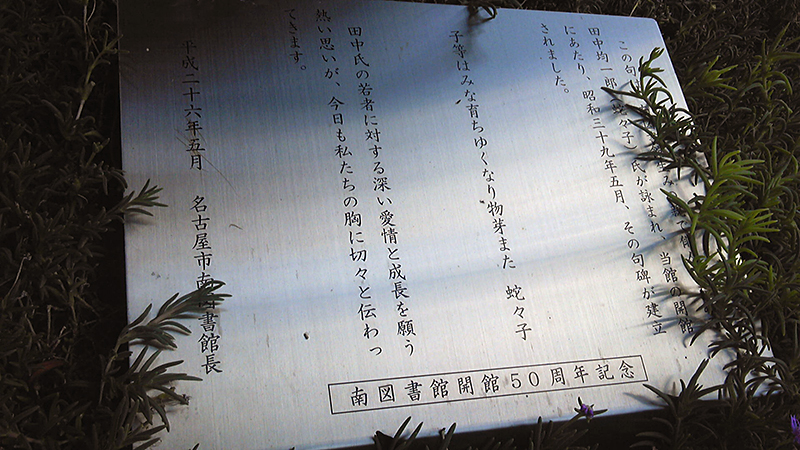 この句
田中均一郎 々子）氏が詠まれ、当館の開館
にあたり、昭和三十九年五月、その句碑が建立
されました。
子等はみな育ちゆくなり物芽また 蛇々子
田中氏の若者に対する深い愛情と成長を願う
熱い思いが、今日も私たちの胸に切々と伝わっ
てきます。
平成二十六年五月 名古屋市南図書館長
南図書館開館50周年記念